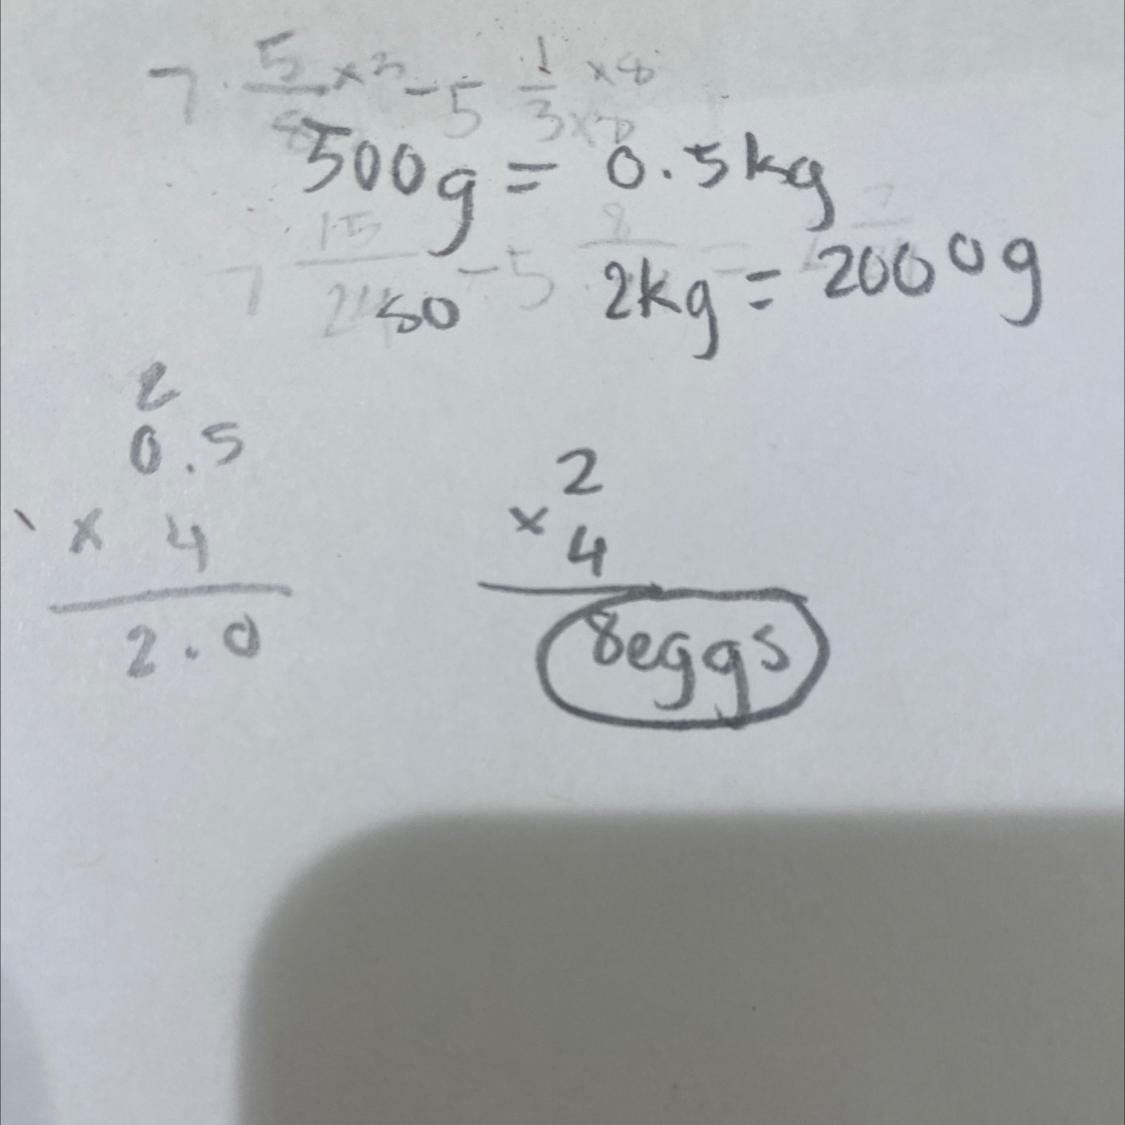 7 5/8 ×3 - 5 1/3 ×8 ×8
500g = 0.5kg
7 15/24 - 5 8/
50 2kg = 2000g
2
0.5
× 4
2.0
2
× 4
8eggs